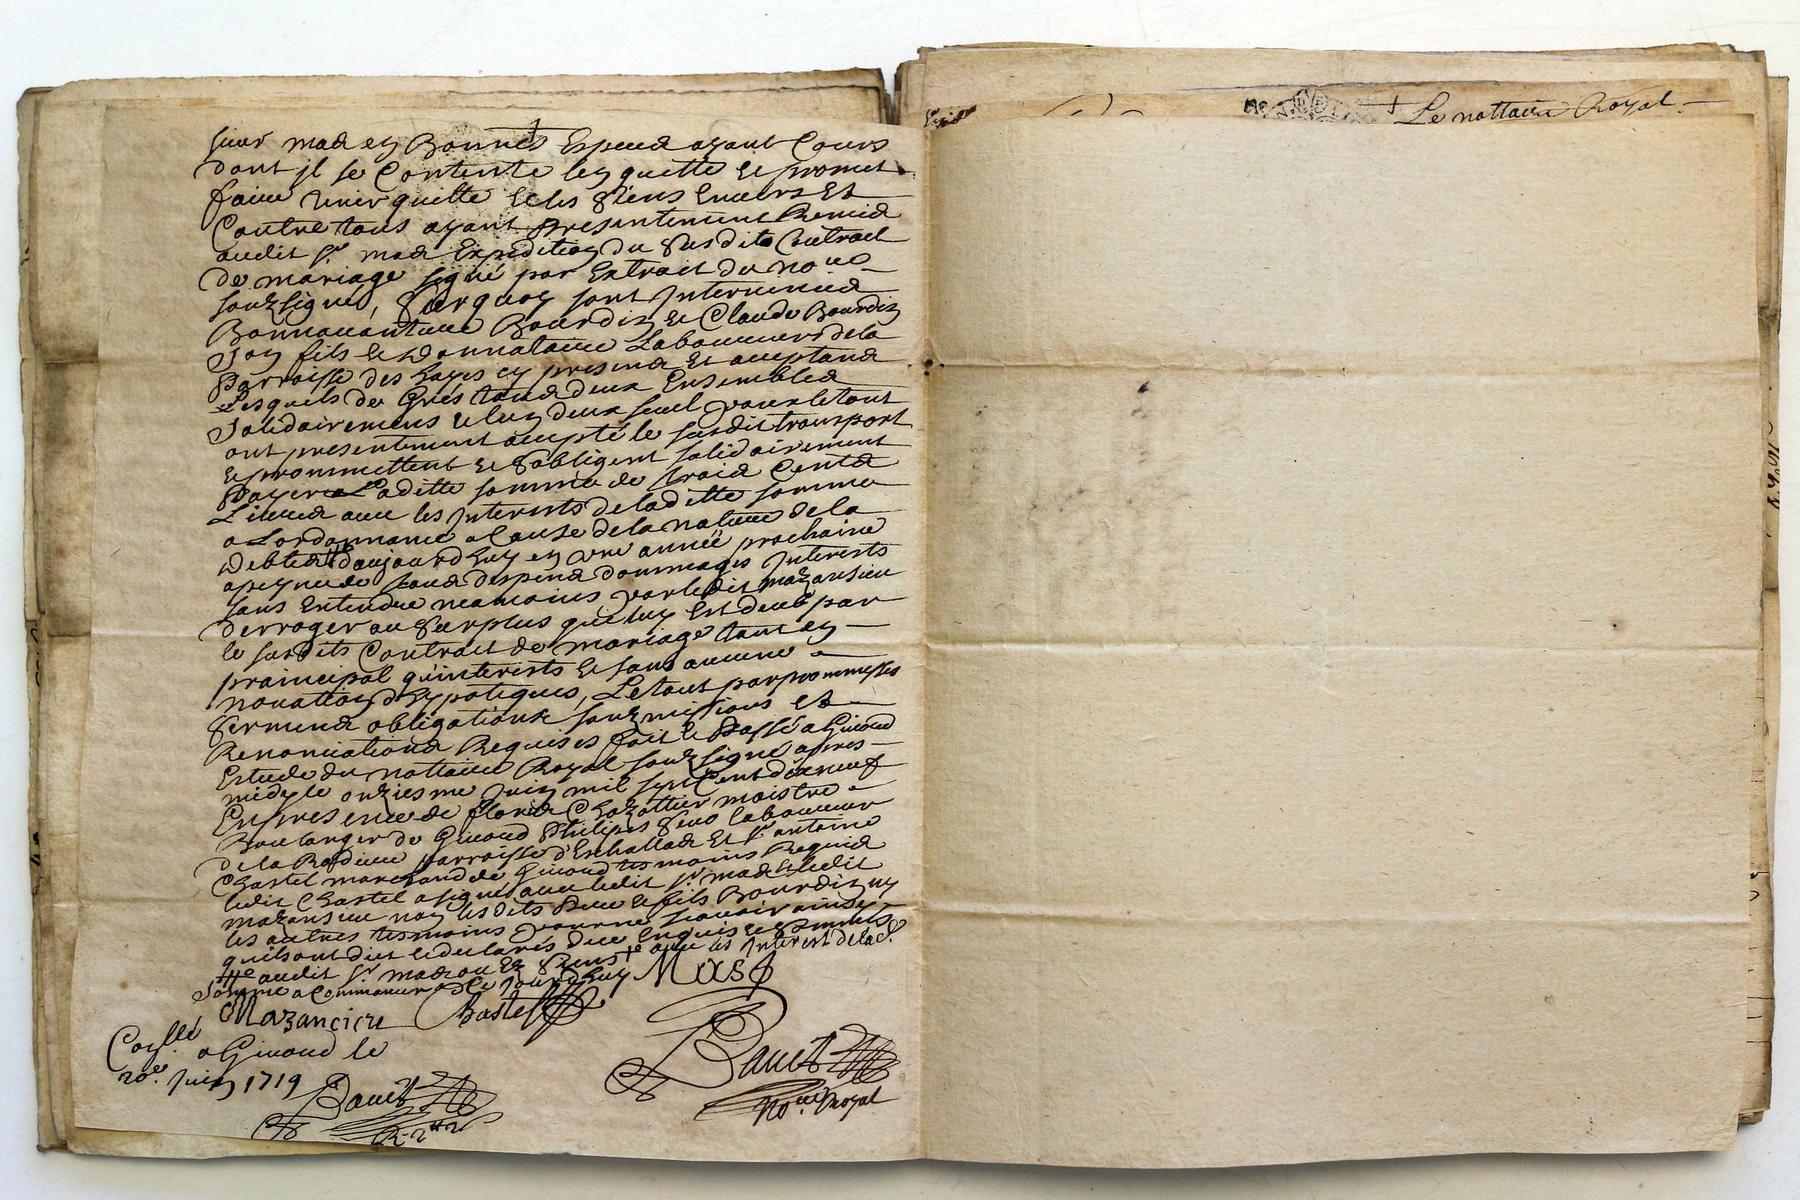 sieur mad en Bonnes Espece ayant Cours
dont jl se Contente len quitte et promet
faire tenir quitte et les siens Envers Et
Contre tous ayant presentement Remis
audit sr. mad Expedition du susdit Contract
de mariage signé par Extrait du nore
soubsigné, surquoy sont Intervenus
Bonnavanture Bourdin et Claude Bourdin
son fils et donnataire Laboureurs de la
Parroisse des hayes cy presens Et aceptans
Lesquels de Grés tous deux Ensembles
solidairemens et lun deux seul pour le tout
ont presentement acepté le susdit transport
et prommettent et sobligent solidairement
Payer Laditte somme de trois Cents
Livres avec les Interests de laditte somme
a Lordonnance a Cause de la nature de la
debte daujourdhuy en une année prochaine
a peyne de tous despens dommages Interests
sans Entendre neamoins par ledit mazansieu
derroger au surplus qui luy Est deub par
le susdits Contrait de mariage tant en
principal quinterists Et sans aucune
novation dhypotiques, Le tout par prommesses
serments obligations soubzmissions et
Renonciations Requises fait et Passé a Givord
Estude du nottaire Royal soubsigné apres
midy le onziesme Juin mil sept Cent dixneuf
En presence de Chazottier maistre
Boulanger de Givord Philipes laboureur
de la parroisse d'Echallas Et sr. antoine
Chastel marchand de Givord tesmoins Requis
ledit Chastel a signé avec ledit sr. mad et ledit
mazansieu non lesdits pere et fils Bourdin ny
les autres tesmoins pour ne scavoir ainsy
quils ont dict et declarés de ce Enquis et
audit sr. mad ou Es siens + avec les Interest de lad.
somme a Commancer de ce Jourdhuy Mas
Mazancieu Chastel
Conllé a Givord le
20e. Juin 1719
Bauet
Bauet
nore. Royal
Le nottaire Royal